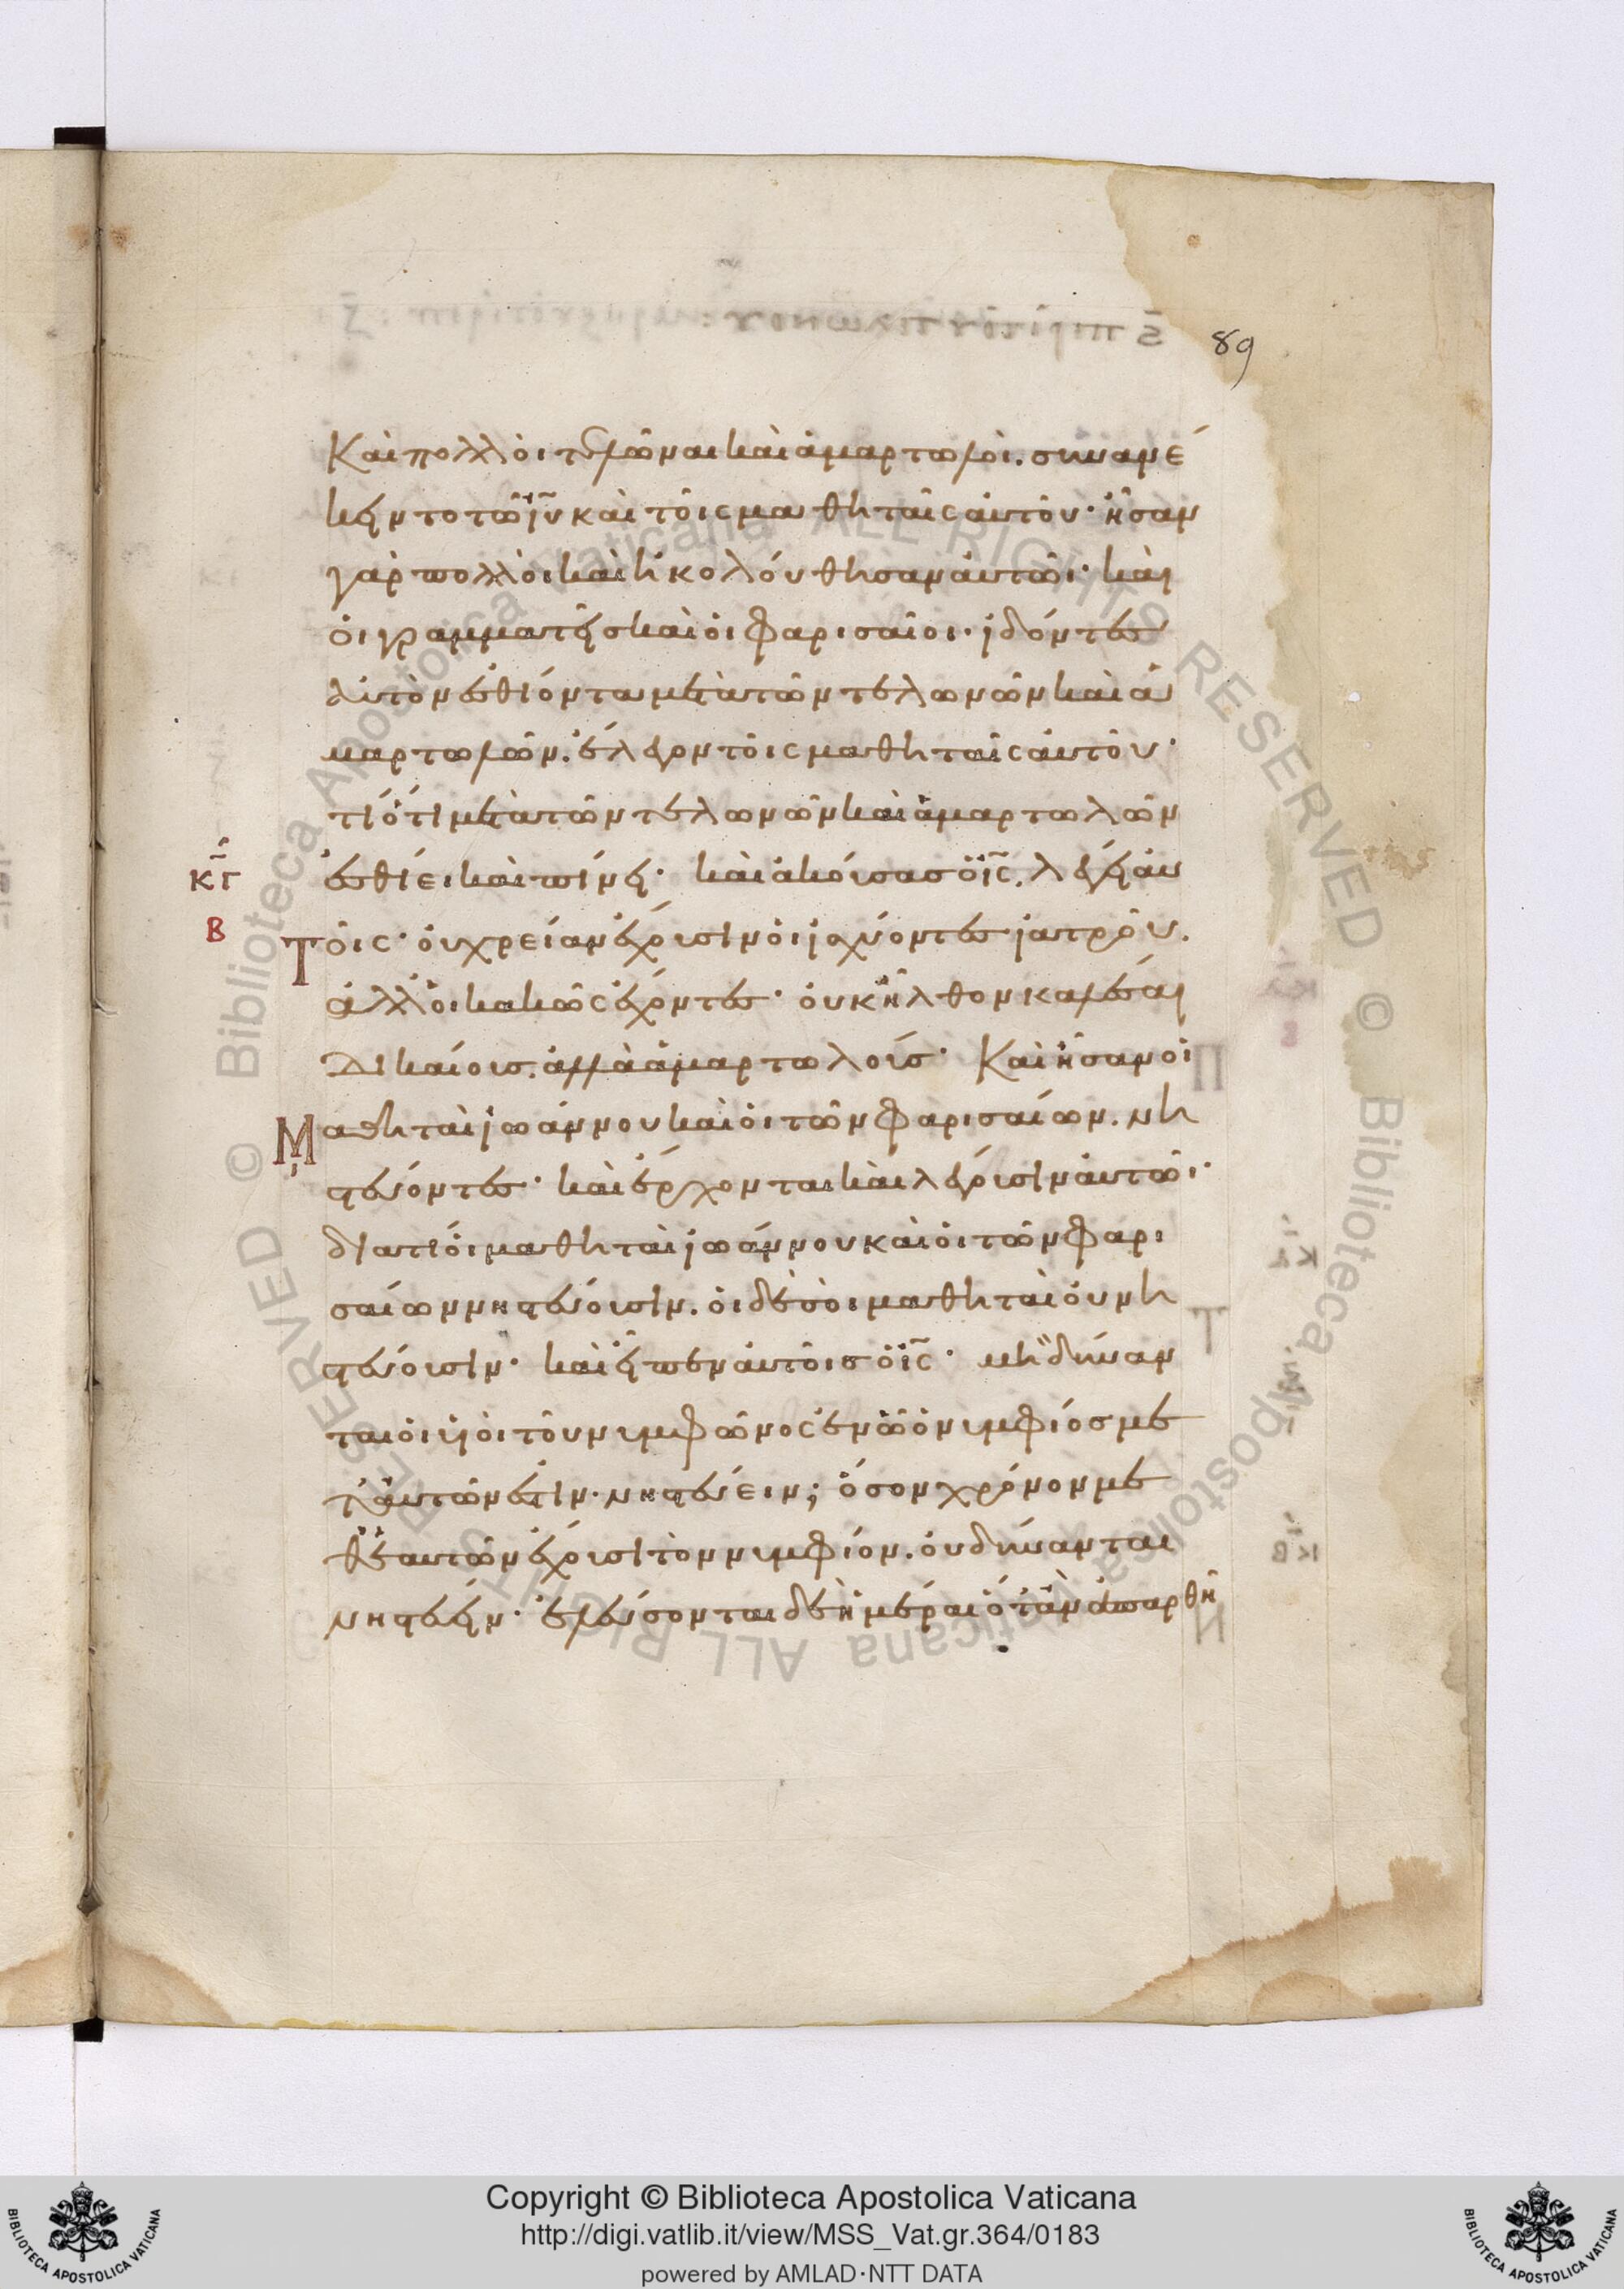 89
Καὶ πολλοὶ τελῶναι καὶ ἁμαρτωλοὶ. συνανέ
κειντο τῶ ἰῦ καὶ τοῖς μαθηταῖς αὐτοῦ· ἦσαν
γὰρ πολλοὶ καὶ ἠκολούθησαν αὐτῶι· καὶ
οἱ γραμματεῖσ καὶ οἱ φαρισαῖοι· ἰδόντες
αὐτὸν ἐσθίοντα μετὰ τῶν τελωνῶν καὶ ἁ
μαρτωλῶν. ἔλεγον τοῖς μαθηταῖς αὐτοῦ·
τί ὅτι μετὰ τῶν τελωνῶν καὶ ἁμαρτωλῶν
κγ ἐσθίει καὶ πίνει· καὶ ἀκούσασ ὁ ἰς. λέγει αὐ
Β Τοῖς· οὐ χρείαν ἔχουσιν οἱ ἰσχύοντες ἰατροῦ.
ἀλλ' οἱ κακῶς ἔχοντες· οὐκ ἦλθον καλέσαι
Δικαίουσ. ἀλλὰ ἁμαρτωλούσ· Καὶ ἦσαν οἱ
Μαθηταὶ ἰωάννου καὶ οἱ τῶν φαρισαίων. νη
στεύοντες· καὶ ἔρχονται καὶ λέγουσιν αὐτῶι·
διατί οἱ μαθηταὶ ἰωάννου καὶ οἱ τῶν φαρι
σαίων νηστεύουσιν. οἱ δὲ σοὶ μαθηταὶ οὐ νη
στεύουσιν· καὶ εἶπεν αὐτοῖσ ὁ ἰς· μὴ δύναν
ται οἱ υἱοὶ τοῦ νυμφῶνος ἐν ὧ ὁ νυμφίοσ με
τ' αὐτῶν ἐστιν· νηστεύειν; ὅσον χρόνον με
θ' ἑαυτῶν ἔχουσι τὸν νυμφίον. οὐ δύνανται
νηστεύειν· ἐλεύσονται δὲ ἡμέραι ὅταν ἀπαρθῆ
Copyright © Biblioteca Apostolica Vaticana
http://digi.vatlib.it/view/MSS_Vat.gr.364/0183
powered by AMLAD·NTT DATA